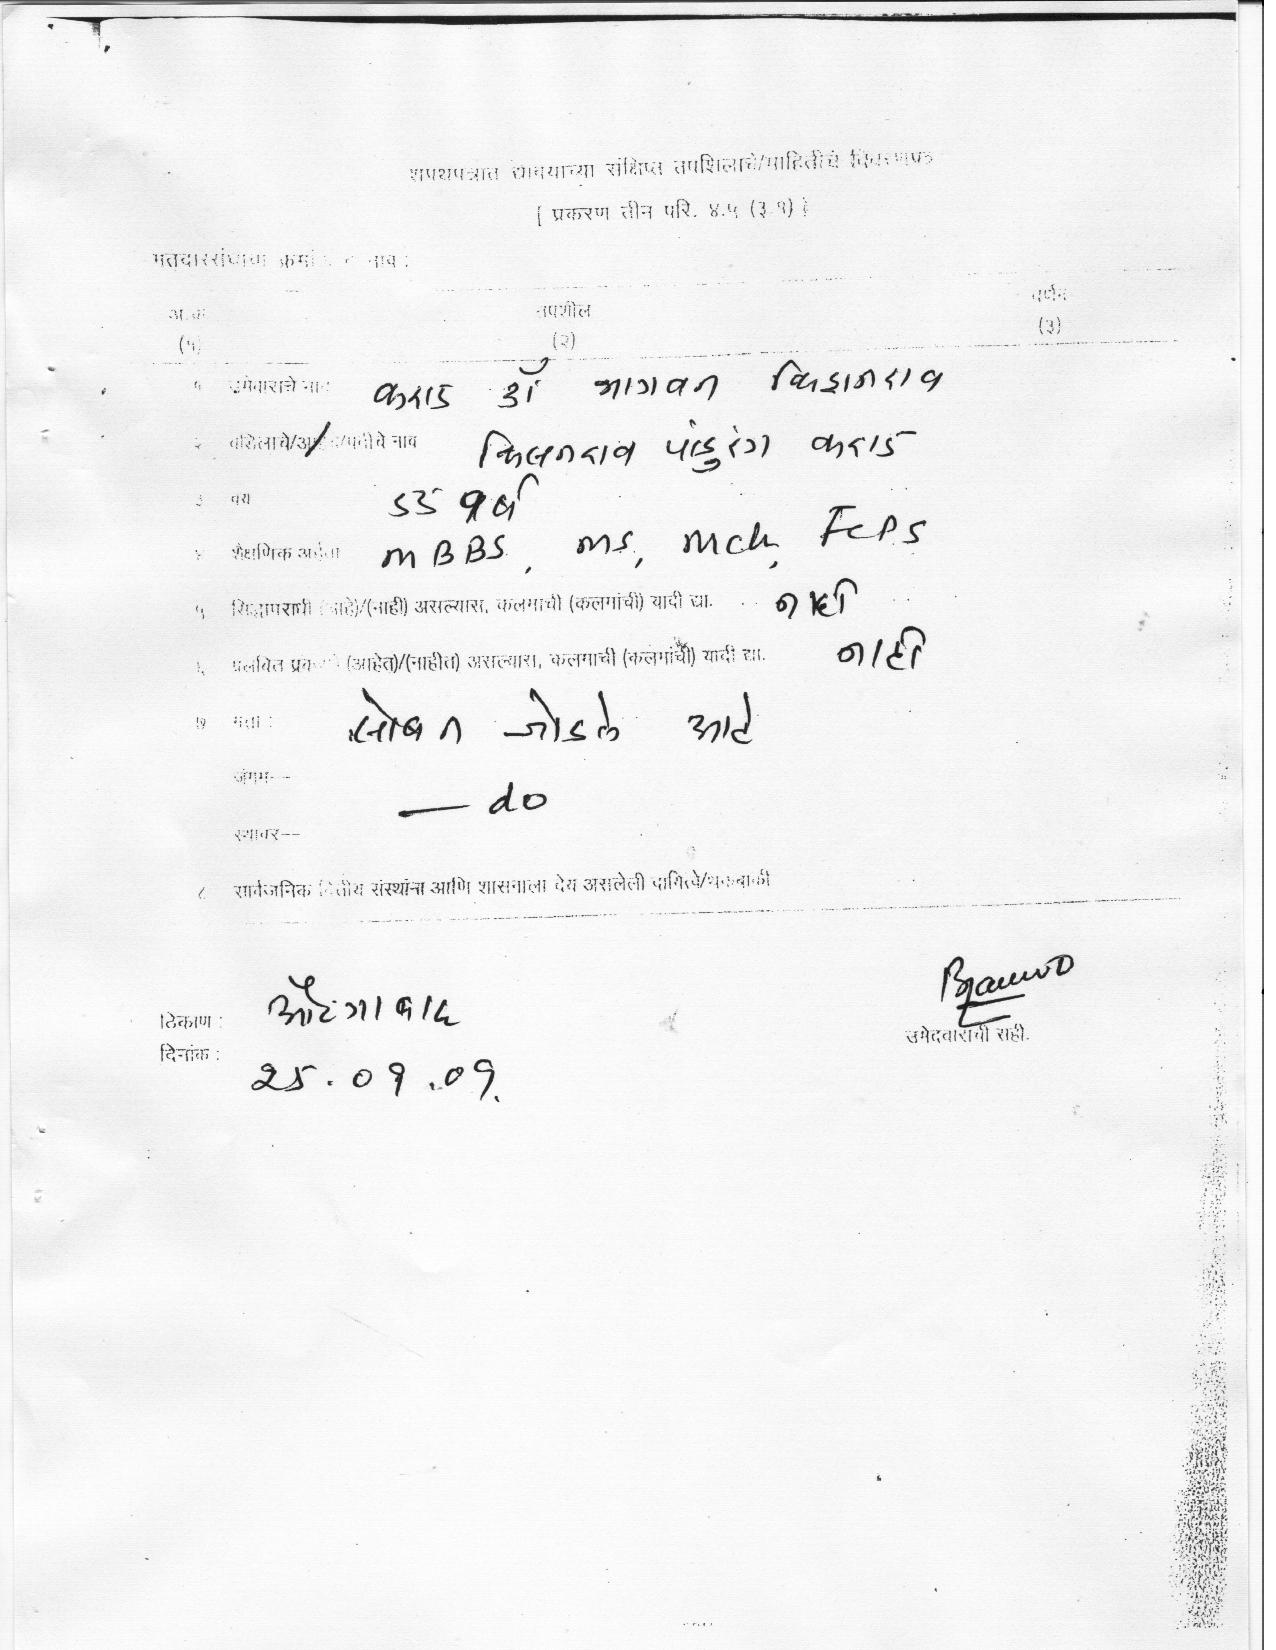 शपथपत्रात द्यावयाच्या संक्षिप्त तपशिलाचे/माहितीचे विवरणपत्र
[ प्रकरण तीन परि. ४.५ (३.१) ]
मतदारसंघाचा क्रमांक व नाव :
अ.क्र तपशील वर्णन
(१) (२) (३)
१ उमेवाराचे नाव कराड डॉ भागवत किशनराव
२ वडिलाचे/आईचे/पतीचे नाव किसनराव पांडुरंग कराड
३ वय ५३ वर्ष
४ शैक्षणिक अर्हता MBBS, MS, Mch, FCPS
५ सिद्धापराधी (आहे)/(नाही) असल्यास, कलमाची (कलमांची) यादी द्या. नाही
६ प्रलंबित प्रकरणे (आहेत)/(नाहीत) असल्यास, कलमाची (कलमांची) यादी द्या. नाही
७ मत्ता : सोबत जोडले आहे
जंगम--
— do
स्थावर--
८ सार्वजनिक वित्तीय संस्थांना आणि शासनाला देय असलेली दायित्वे/थकबाकी
ठिकाण : औरंगाबाद
उमेदवाराची सही.
दिनांक :
25.09.09.